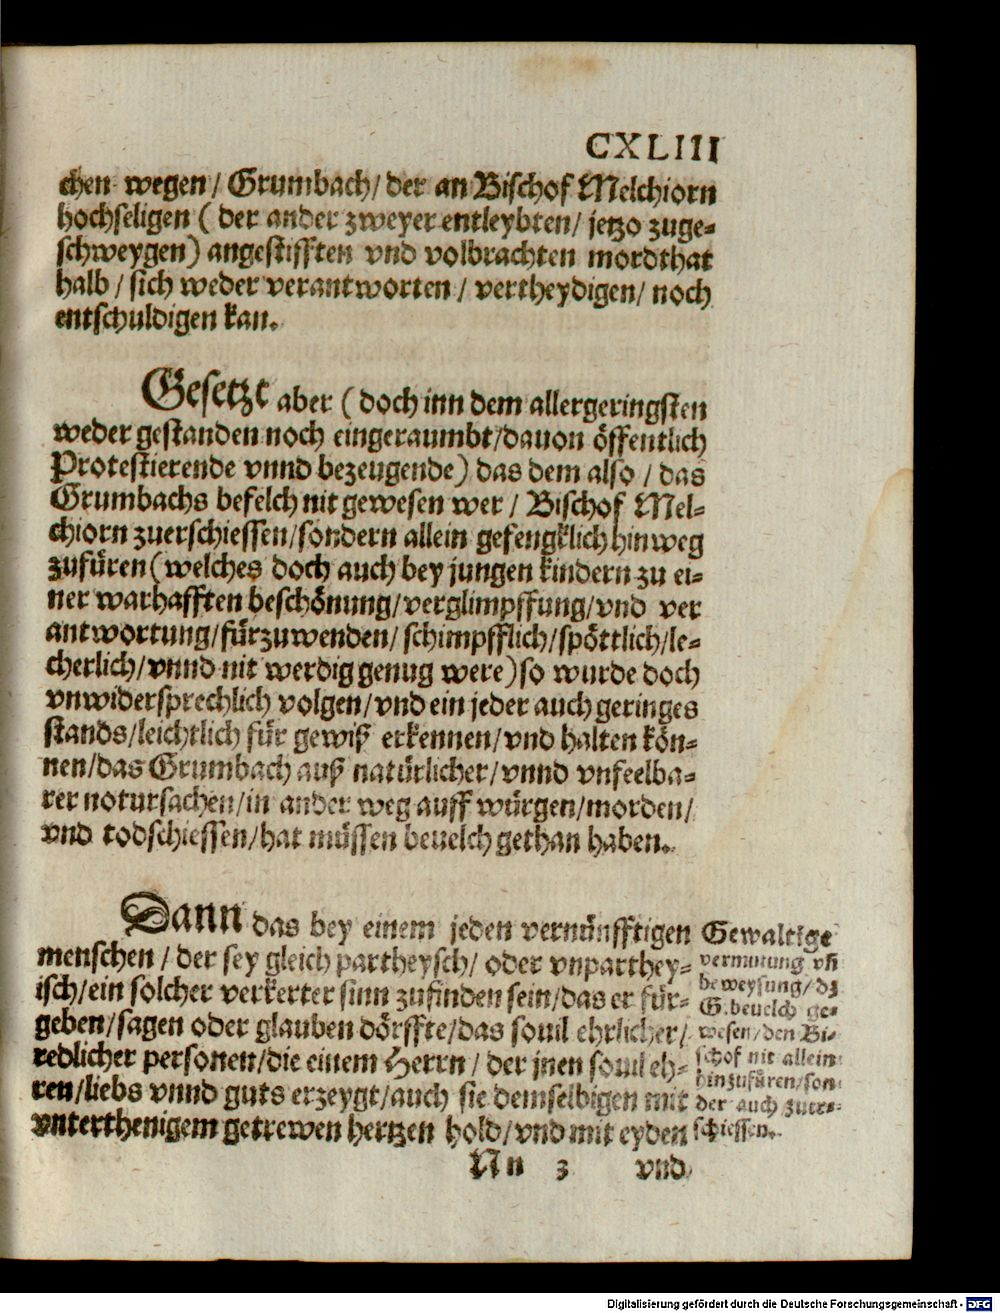 CXLIII
chen wegen/ Grumbach/ der an Bischof Melchiorn
hochseligen ( der ander zweyer entleybten/ jetzo zuge-
schweygen) angestifften vnd volbrachten mordthat
halb / sich weder verantworten / vertheydigen/ noch
entschuldigen kan.
Gesetzt aber ( doch inn dem allergeringsten
weder gestanden noch eingeraumbt/dauon öffentlich
Protestierende vnnd bezeugende) das dem also / das
Grumbachs befelch nit gewesen wer / Bischof Mel-
chiorn zuerschiessen/sondern allein gefengklich hinweg
zufüren (welches doch auch bey jungen kindern zu ei-
ner warhafften beschönung/verglimpffung/vnd ver
antwortung/fürzuwenden/ schimpfflich/spöttlich/le-
cherlich/vnnd nit werdig genug were)so wurde doch
vnwidersprechlich volgen/vnd ein jeder auch geringes
stands/leichtlich für gewiß erkennen/vnd halten kön-
nen/das Grumbach auß natürlicher/vnnd vnfeelba-
rer notursachen/in ander weg auff würgen/morden/
vnd todschiessen/hat müssen beuelch gethan haben.
Dann das bey einem jeden vernünfftigen
menschen / der sey gleich partheysch/ oder vnparthey-
isch/ein solcher verkerter sinn zufinden sein/das er für-
geben/sagen oder glauben dörffte/das souil ehrlicher/
redlicher personen/die einem Herrn / der jnen souil eh-
ren/liebs vnnd guts erzeygt/auch sie demselbigen mit
vnterthenigem getrewen hertzen hold/vnd mit eyden
Gewaltige
vermutung vñ
beweysung/dz
G.beuelch ge-
wesen/den Bi-
schof nit allein
hinzufüren/son
der auch zuer-
schiessen.
Nn 3 vnd
Digitalisierung gefördert durch die Deutsche Forschungsgemeinschaft - DFG